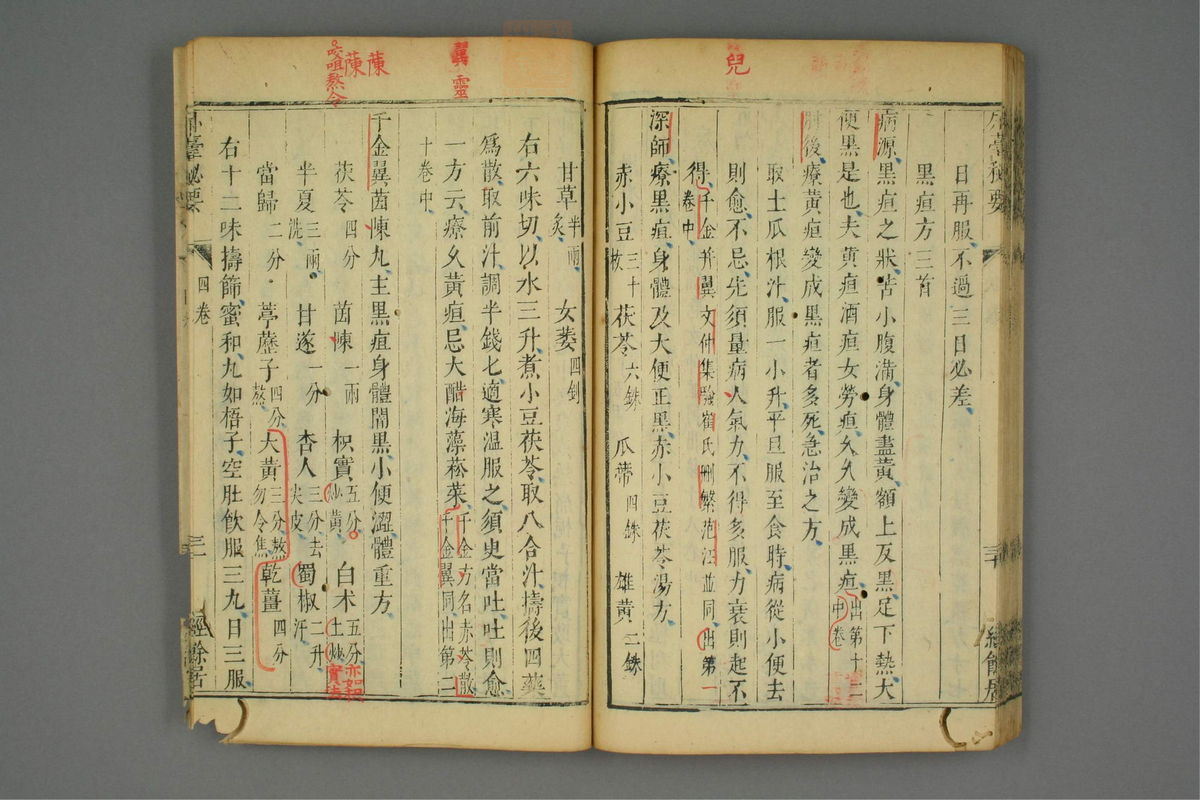 日再服、不過三日必差、
黑疸方三首
病源、黑疸之狀、苦小腹滿、身體盡黃、額上反黑、足下熱、大
便黑是也、夫黃疸酒疸女勞疸、久久變成黑疸、出第十二
中卷
肘後、療黃疸變成黑疸者多死、急治之方、
取土瓜根汁、服一小升、平旦服至食時、病從小便去
則愈、不忌、先須量病人氣力、不得多服、力衰則起不
得、千金并翼文仲集驗崔氏刪繁范汪並同出第一
卷中
深師療黑疸、身體及大便正黑、赤小豆茯苓湯方、
赤小豆三十枚 茯苓六銖 瓜蒂四銖 雄黃二銖
甘草半兩炙 女萎四銖
右六味切、以水三升、煮小豆茯苓、取八合汁、擣後四藥
爲散、取前汁調半錢匕、適寒溫服之、須臾當吐、吐則愈
一方云、療久黃疸、忌大醋海藻菘菜、千金方名赤苓散
千金翼同出第二
十卷中
千金翼、茵陳丸、主黑疸身體闇黑、小便澀體重方、
茯苓四分 茵陳一兩 枳實五分炒黃 白术五分土炒
半夏三兩洗 甘遂一分 杏人三分去尖皮 蜀椒二升汗
當歸二分 葶藶子四分熬 大黃三分熬勿令焦 乾薑四分
右十二味、擣篩、蜜和、丸如梧子、空肚飲服三丸、日三服
四卷
經餘居
兒
翼
靈
蔯
蔯
㕮咀熬令